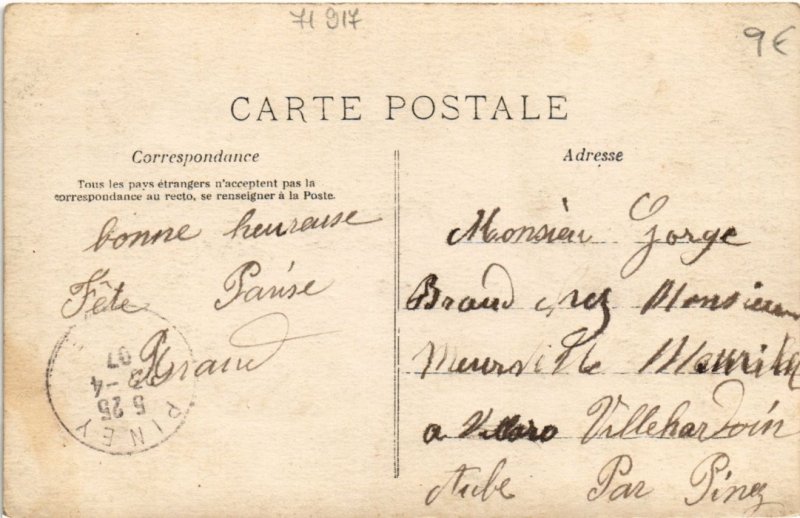 71 917
9€
CARTE POSTALE
Correspondance
Tous les pays étrangers n'acceptent pas la
correspondance au recto, se renseigner à la Poste.
bonne heureuse
Fête Parise
Braud
PINEY
5 25
-4
07
Adresse
Monsieu Gorge
Braud chez Monsieur
Meurville
a Villehardoin
Aube Par Piney